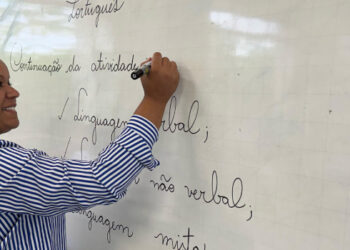 Português
Continuação da atividade
✓ Linguagem verbal;
✓ Linguagem não verbal;
Linguagem mista